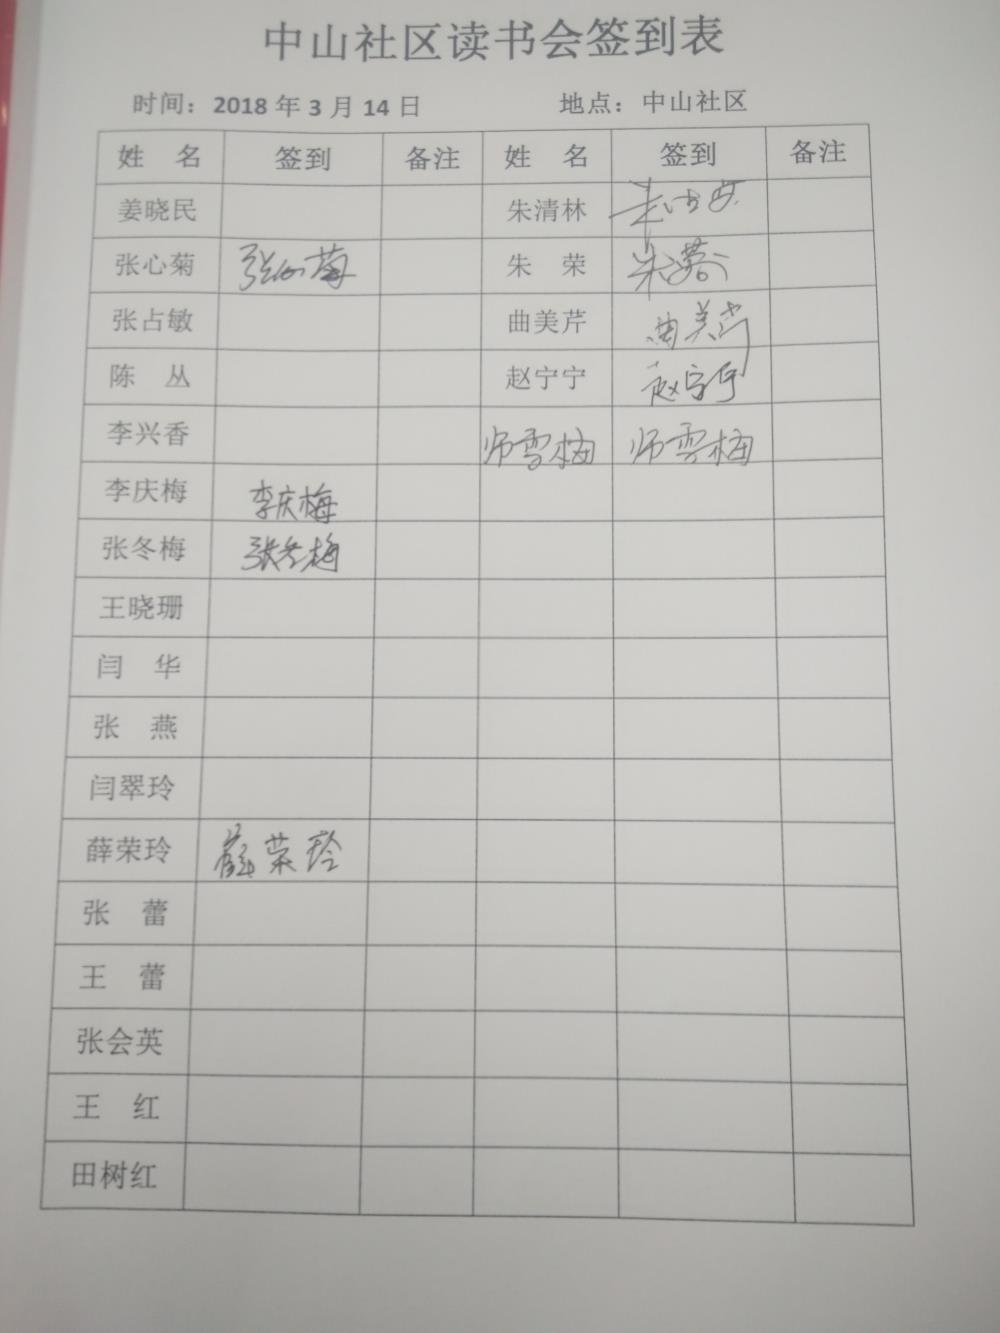 中山社区读书会签到表
时间：2018 年 3 月 14 日 地点：中山社区
姓 名 签到 备注 姓 名 签到 备注
姜晓民 朱清林
张心菊 张心菊 朱 荣 朱
张占敏 曲美芹 曲美芹
陈 丛 赵宁宁 赵宁宁
李兴香 师雪梅 师雪梅
李庆梅 李庆梅
张冬梅 张冬梅
王晓珊
闫 华
张 燕
闫翠玲
薛荣玲 薛荣玲
张 蕾
王 蕾
张会英
王 红
田树红